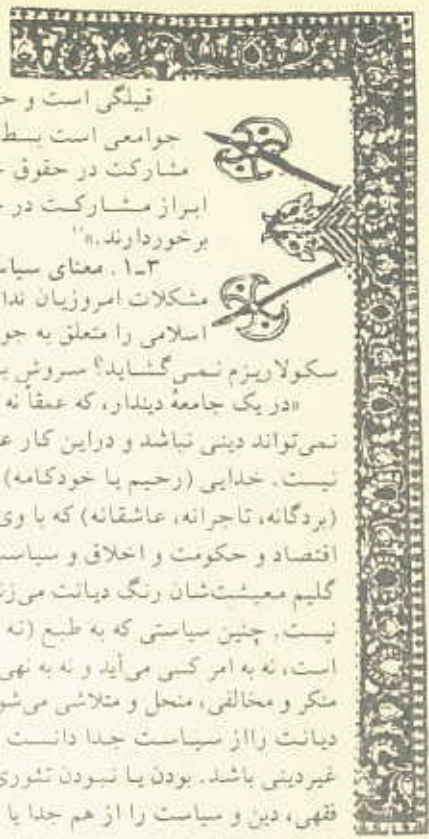 قبیلگی است و حـ
جوامعی است بسط
مشارکت در حقوق حـ
ابراز مشارکت در حـ
برخوردارند.»¹¹
۳ـ۱. معنای سیاسـ
مشکلات امروزیان ندا
اسلامی را متعلق به جو
سکولاریزم نمی‌گشاید؟ سروش بـ
«در یک جامعهٔ دیندار، که عمقاً نه
نمی‌تواند دینی نباشد و دراین کار عـ
نیست. خدایی (رحیم یا خودکامه)
(بردگانه، تاجرانه، عاشقانه) که با وی
اقتصاد و حکومت و اخلاق و سیاست
گلیم معیشت‌شان رنگ دیانت می‌زنـ
نیست. چنین سیاستی که به طبع (نه
است، نه به امر کسی می‌آید و نه به نهی
منکر و مخالفی، منحل و متلاشی می‌شو
دیانت رااز سیاست جدا دانست
غیردینی باشد. بودن یا نبودن تئوری
فقهی، دین و سیاست را از هم جدا یا